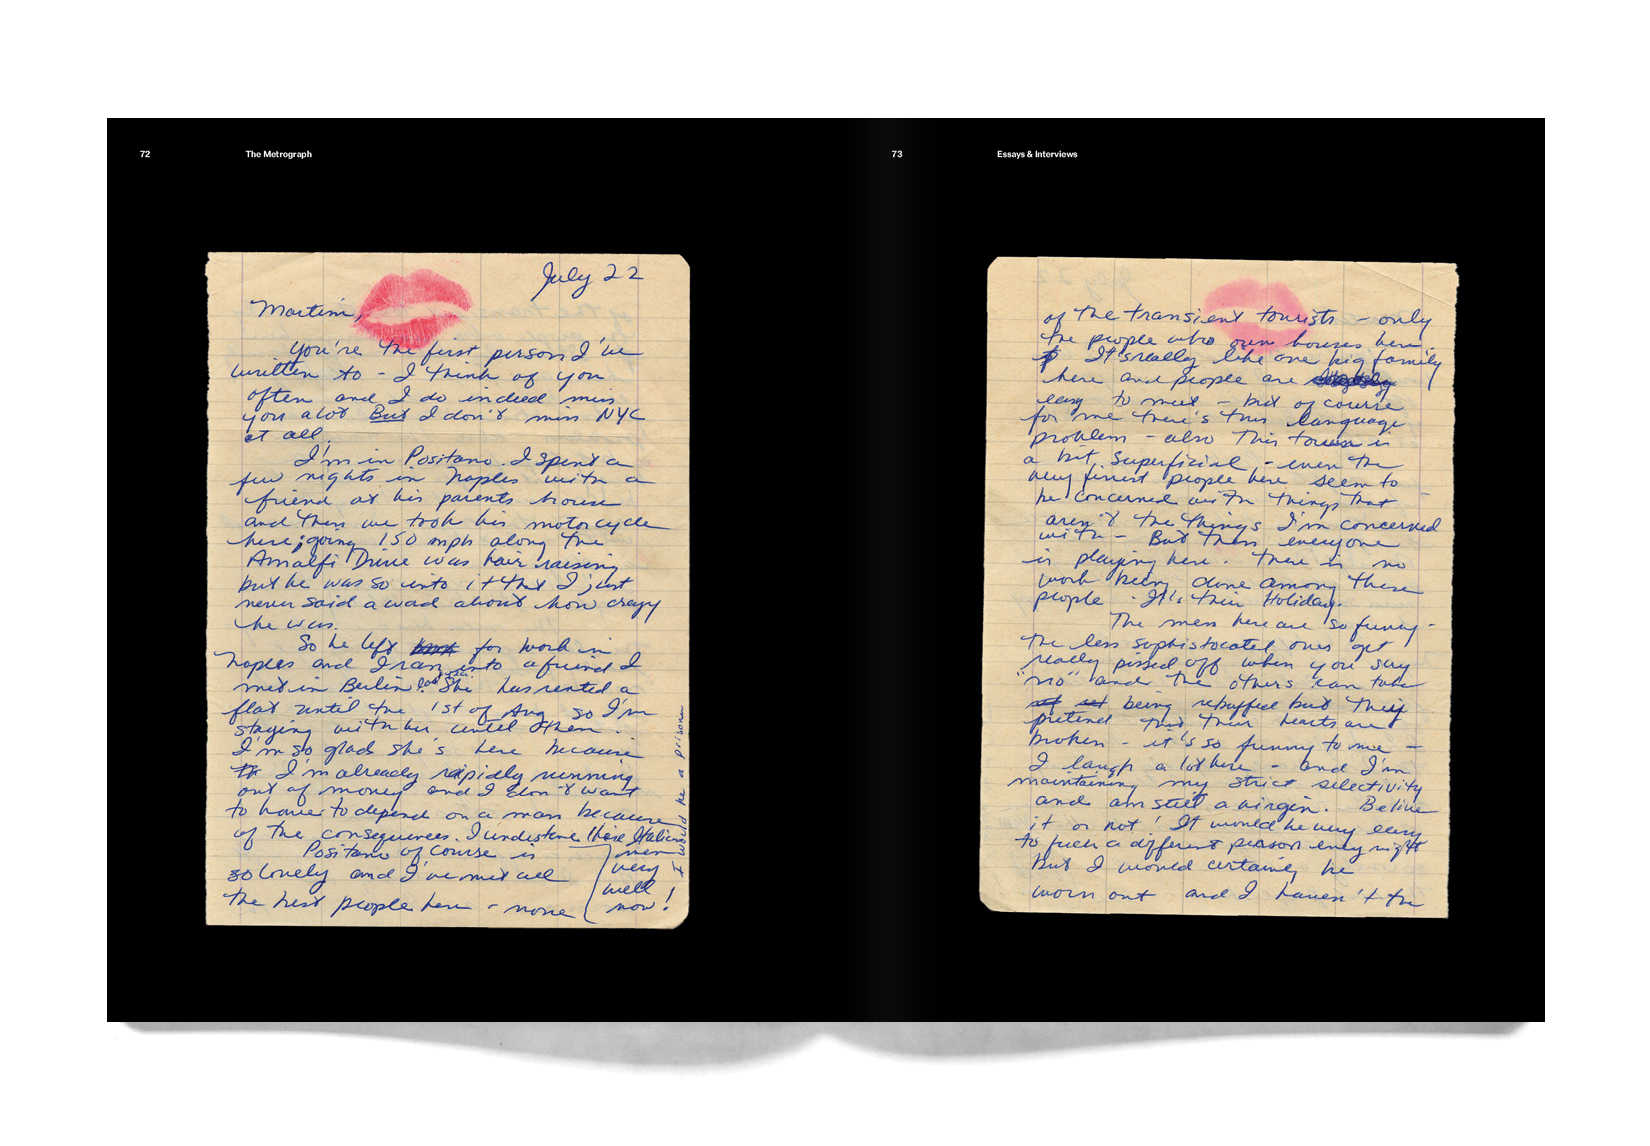 72
The Metrograph
July 22
Martini,
You're the first person I've
written to - I think of you
often and I do indeed miss
you alot But I don't miss NYC
at all.
I'm in Positano. I spent a
few nights in Naples with a
friend at his parents house
and then we took his motorcycle
here; going 150 mph along the
Amalfi Drive was hair raising
but he was so into it that I just
never said a word about how crazy
he was.
So he left for work in
Naples and I ran into a friend I
met in Berlin last year. She has rented a
flat until the 1st of Aug so I'm
staying with her until then.
I'm so glad she's here because
I'm already rapidly running
out of money and I don't want
to have to depend on a man because
of the consequences. I understand these Italian
men
very
well
now!
I would be a prisoner
Positano of course is
so lovely and I've met all
the best people here - none
73
Essays & Interviews
of the transient tourists - only
the people who own houses here.
It's really like one big family
here and people are
easy to meet - but of course
for me there's this language
problem - also This town is
a bit superficial - even the
very finest people here seem to
be concerned with things that
aren't the things I'm concerned
with - But then everyone
is playing here. There is no
work being done among these
people. It's their Holiday.
The men here are so funny -
the less sophistocated ones get
really pissed off when you say
"no" and the others can take
being rebuffed but they
pretend that their hearts are
broken - it's so funny to me -
I laugh a lot here - and I'm
maintaining my strict selectivity
and am still a virgin. Belive
it or not! It would be very easy
to fuck a different person every night
but I would certainly be
worn out and I haven't the